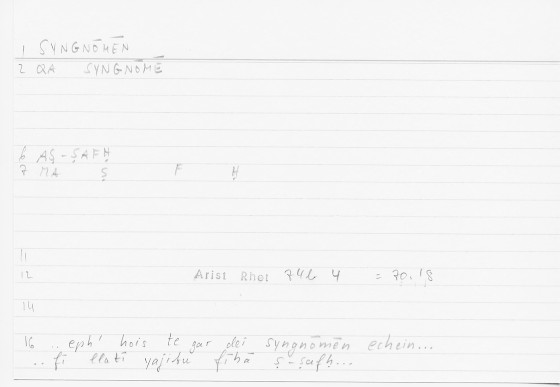 1 SYNGNŌMĒN
2 QA SYNGNŌMĒ
6 AṢ-ṢAFḤ
7 MA Ṣ F Ḥ
11
12 Arist Rhet 74b 4 = 70.18
14
16 ..eph' hois te gar dei syngnōmēn echein...
.. fī llatī yajibu fīhā ṣ-ṣafḥ...